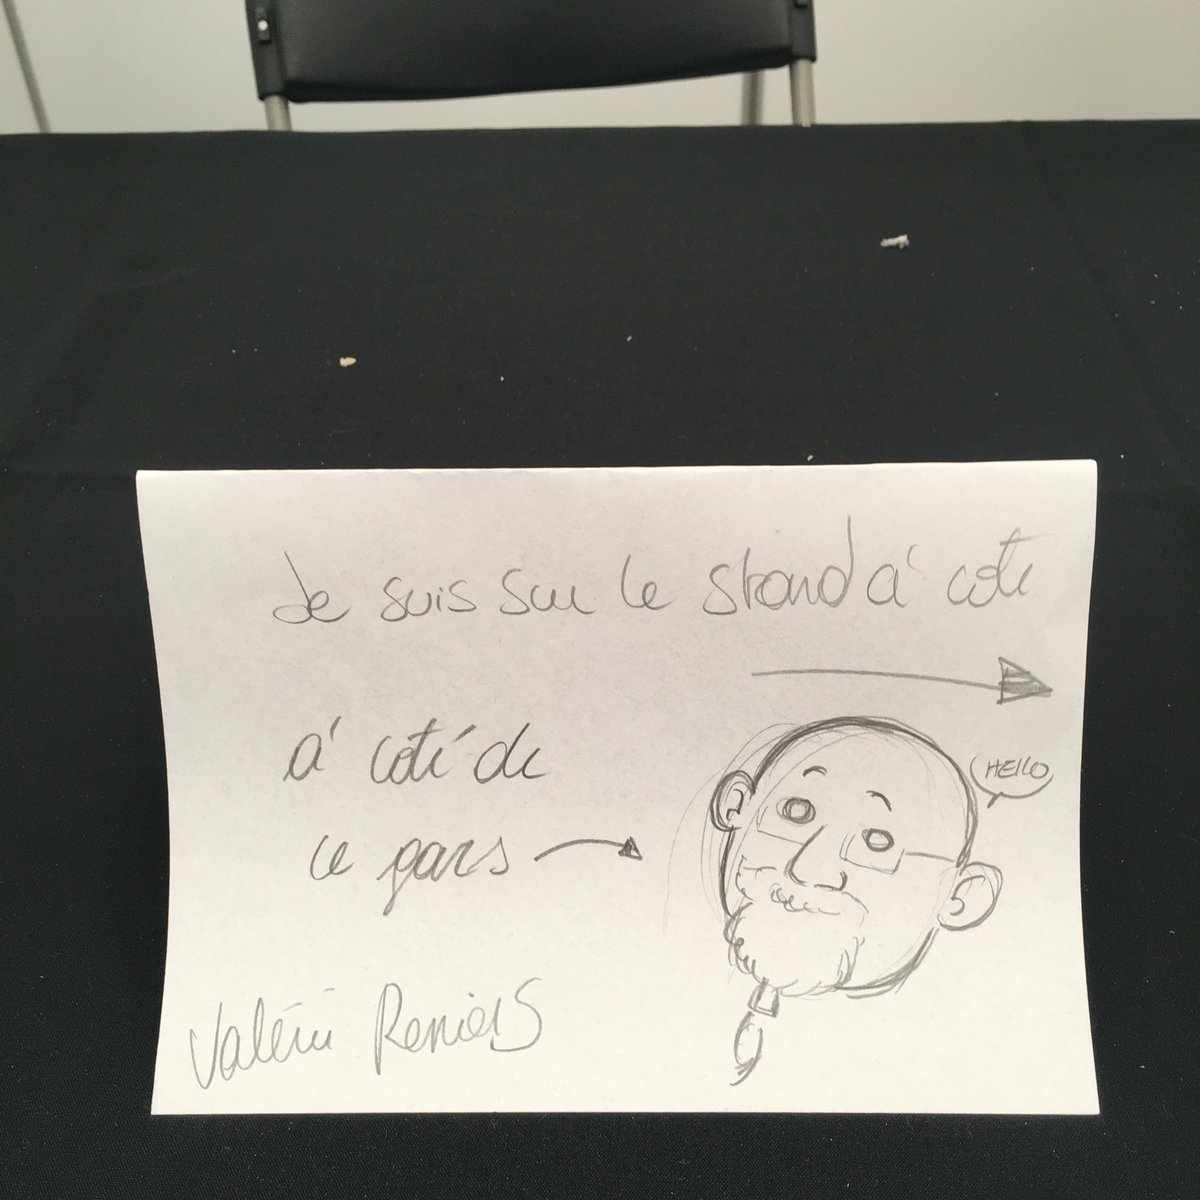 Je suis sur le stand à coté
à coté de
HELLO
ce gars
Valérie Reniers